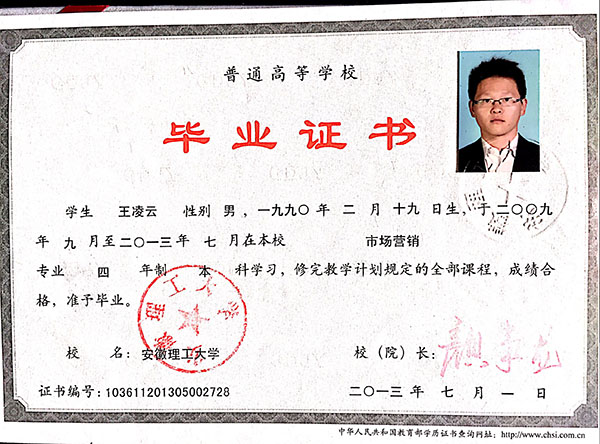 普通高等学校
毕业证书
学生 王凌云 性别 男，一九九〇年 二 月 十九 日生，于二〇〇九
年 九 月至二〇一三年 七 月在本校 市场营销
专业 四 年制 本 科学习，修完教学计划规定的全部课程，成绩合
格，准予毕业。
校 名：安徽理工大学 校（院）长：
证书编号：103611201305002728 二〇一三 年 七 月 一 日
中华人民共和国教育部学历证书查询网址：http://www.chsi.com.cn